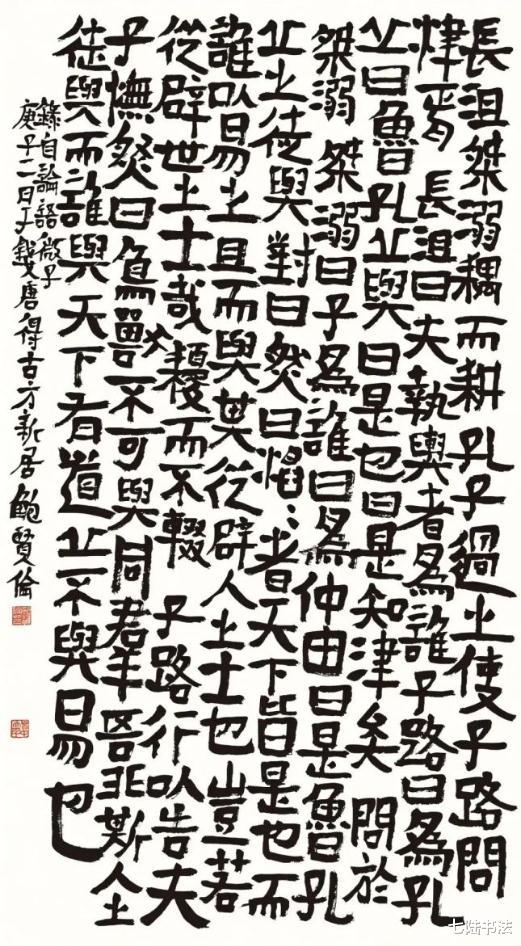 長沮桀溺耦而耕孔子過之使子路問
津焉 長沮曰夫執輿者為誰子路曰為孔
丘曰魯孔丘與曰是也曰是知津矣 問於
桀溺 桀溺曰子為誰曰為仲由曰是魯孔
丘之徒與 對曰然曰慆〻者天下皆是也而
誰以易之且而與其從辟人之士也豈若
從辟世之士哉耰而不輟 子路行以告夫
子憮然曰鳥獸不可與同群吾非斯人之
徒與而誰與天下有道丘不與易也
錄自論語微子
庚子二日于錢唐得古方新居鮑賢倫
七陆书法